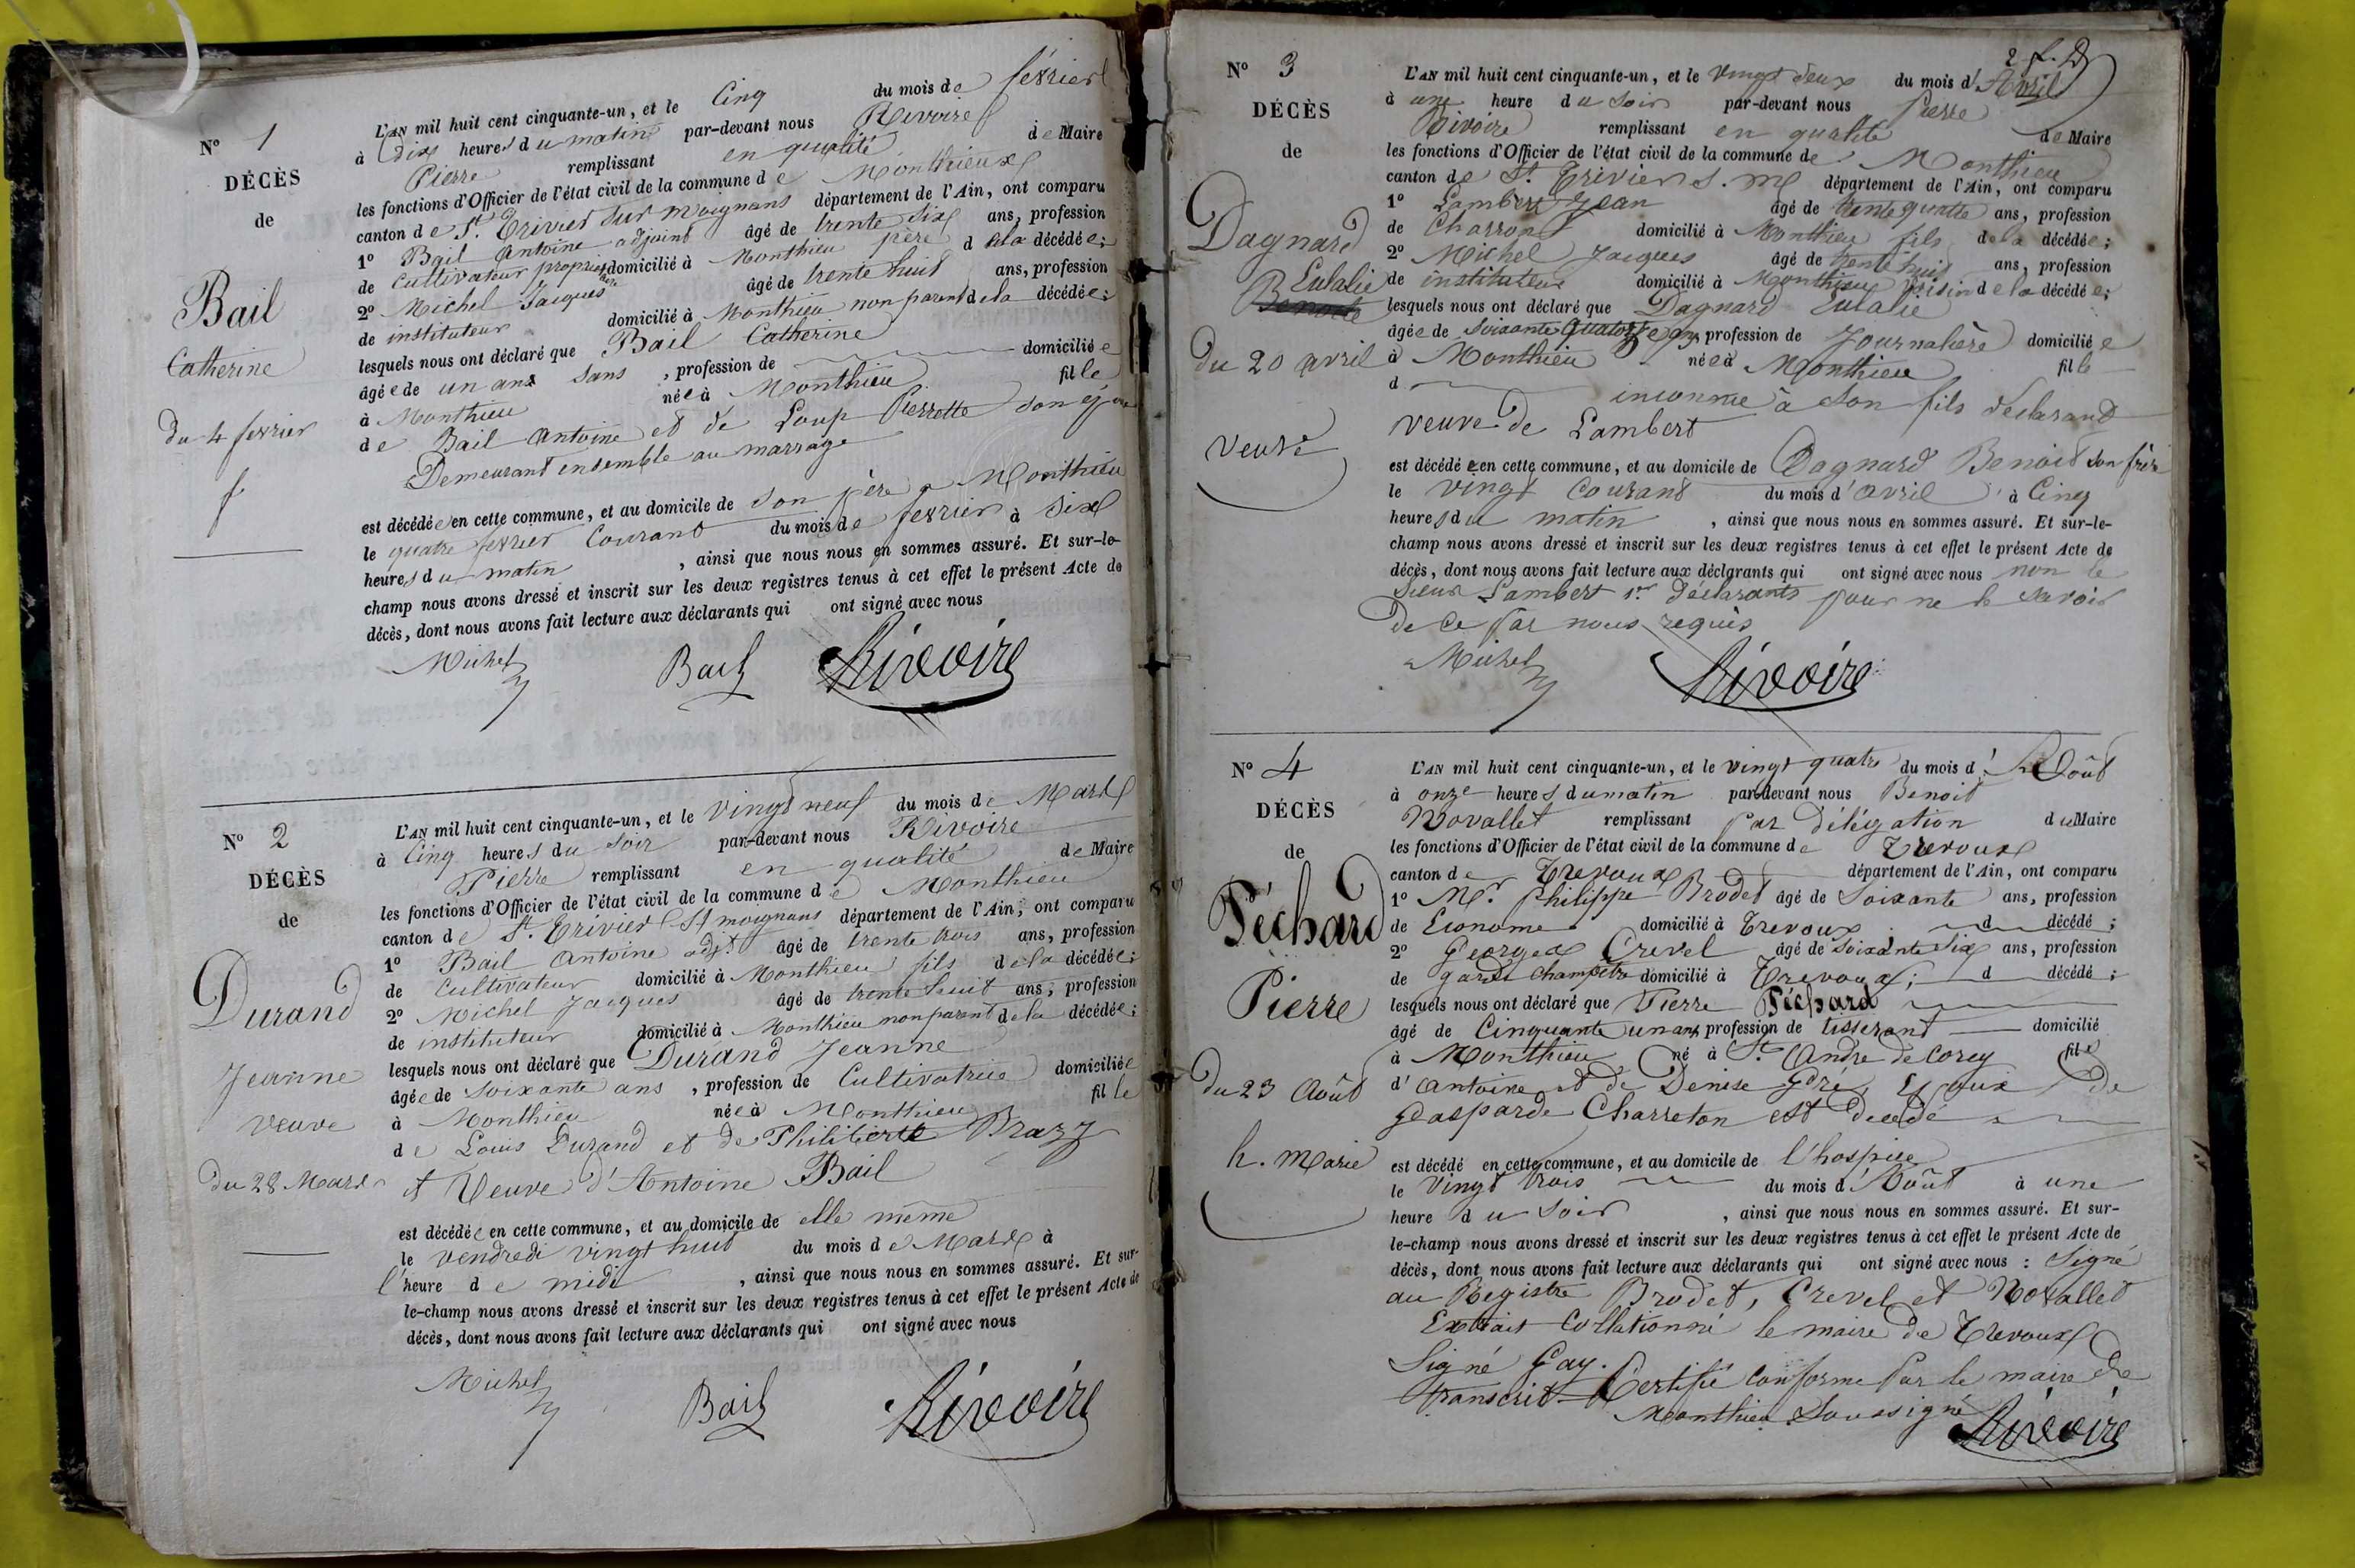 N° 1
DÉCÈS
de
Bail
Catherine
du 4 fevrier
f
L'AN mil huit cent cinquante-un, et le Cinq du mois de fevrier
à Dix heures du matin par-devant nous Rivoire
Pierre remplissant en qualité de Maire
les fonctions d'Officier de l'état civil de la commune de Monthieux
canton de St. Trivier sur moignans département de l'Ain, ont comparu
1° Bail Antoine adjoint âgé de trente six ans, profession
de Cultivateur propriétaire domicilié à Monthieu père de la décédée;
2° Michel Jacques âgé de trente huit ans, profession
de instituteur domicilié à Monthieu non parent de la décédée;
lesquels nous ont déclaré que Bail Catherine
âgée de un ans sans , profession de domiciliée
à Monthieu née à Monthieu fille
de Bail Antoine et de Loup Pierrette son
Demeurant ensemble au marrage
est décédée en cette commune, et au domicile de son père a Monthieu
le quatre fevrier Courant du mois de fevrier à Six
heures du matin , ainsi que nous nous en sommes assuré. Et sur-le-
champ nous avons dressé et inscrit sur les deux registres tenus à cet effet le présent Acte de
décès, dont nous avons fait lecture aux déclarants qui ont signé avec nous
Michel Bail Rivoire
N° 2
DÉCÈS
de
Durand
Jeanne
veuve
du 28 Mars
L'AN mil huit cent cinquante-un, et le vingt neuf du mois de Mars
à Cinq heures du soir par-devant nous Rivoire
Pierre remplissant en qualité de Maire
les fonctions d'Officier de l'état civil de la commune de Monthieu
canton de St. Trivier St moignans département de l'Ain, ont comparu
1° Bail Antoine adjt. âgé de trente trois ans, profession
de Cultivateur domicilié à Monthieu fils de la décédée;
2° Michel Jacques âgé de trente huit ans, profession
de instituteur domicilié à Monthieu non parent de la décédée;
lesquels nous ont déclaré que Durand Jeanne
âgée de soixante ans , profession de Cultivatrice domiciliée
à Monthieu née à Monthieu fille
de Louis Durand et de Philiberte Brazy
et Veuve d'Antoine Bail
est décédée en cette commune, et au domicile de elle même
le vendredi vingt huit du mois de Mars à
l'heure de midi , ainsi que nous nous en sommes assuré. Et sur-
le-champ nous avons dressé et inscrit sur les deux registres tenus à cet effet le présent Acte de
décès, dont nous avons fait lecture aux déclarants qui ont signé avec nous
Michel Bail Rivoire
2
N° 3
DÉCÈS
de
Dagnard
Eulalie
du 20 avril
veuve
L'AN mil huit cent cinquante-un, et le vingt deux du mois d'Avril
à une heure du soir par-devant nous Pierre
Rivoire remplissant en qualité de Maire
les fonctions d'Officier de l'état civil de la commune de Monthieu
canton de St. Trivier s. m département de l'Ain, ont comparu
1° Lambert Jean âgé de trente quatre ans, profession
de Charron domicilié à Monthieu fils de la décédée;
2° Michel Jacques âgé de trente huit ans, profession
de instituteur domicilié à Monthieu voisin de la décédée;
lesquels nous ont déclaré que Dagnard Eulalie
âgée de soixante quatorze ans, profession de Journalière domiciliée
à Monthieu née à Monthieu fille
d inconnue à son fils déclarand
veuve de Lambert
est décédée en cette commune, et au domicile de Dagnard Benoit son frère
le vingt Courant du mois d'avril à Cinq
heures du matin , ainsi que nous nous en sommes assuré. Et sur-le-
champ nous avons dressé et inscrit sur les deux registres tenus à cet effet le présent Acte de
décès, dont nous avons fait lecture aux déclarants qui ont signé avec nous non le
Sieur Lambert 1er déclarants pour ne le savoir
De Ce par nous requis
Michel Rivoire
N° 4
DÉCÈS
de
Péchard
Pierre
du 23 Août
h. Marié
L'AN mil huit cent cinquante-un, et le vingt quatre du mois d'Août
à onze heures du matin par-devant nous Benoit
Novallet remplissant par délégation du Maire
les fonctions d'Officier de l'état civil de la commune de Trevoux
canton de Trevoux département de l'Ain, ont comparu
1° Mr. Philippe Brodet âgé de Soixante ans, profession
de Econome domicilié à Trevoux d décédé ;
2° Georges Crevel âgé de soixante Six ans, profession
de garde champetre domicilié à Trevoux; d décédé ;
lesquels nous ont déclaré que Pierre Péchard
âgé de Cinquante un ans, profession de tisserant domicilié
à Monthieu né à St. André de Corcy fils
d'Antoine et de Denise Gdré, Epoux De
Gasparde Charreton est Decedé
est décédé en cette commune, et au domicile de l'hospice
le Vingt trois du mois d'Août à une
heure du Soir , ainsi que nous nous en sommes assuré. Et sur-
le-champ nous avons dressé et inscrit sur les deux registres tenus à cet effet le présent Acte de
décès, dont nous avons fait lecture aux déclarants qui ont signé avec nous : Signé
au Registre Brodet, Crevel et Novallet
Extrait Collationné le maire de Trevoux
Signé Gay.
transcrit Certifié Conforme Par le maire de
Monthieu Soussigné
Rivoire